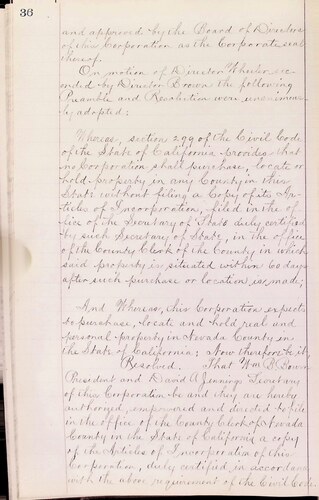 36
and approved by the Board of Directors
of this Corporation as the Corporate seal
thereof.
On motion of Director Wheeler, sec-
onded by Director Brown the following
Preamble and Resolution were unanimous-
ly adopted:
Whereas, section 299 of the Civil Code
of the State of California provides that
no Corporation shall purchase, locate or
hold property in any County in this
State without filing a Copy of its Ar-
ticles of Incorporation, filed in the of-
fice of the Secretary of State duly certified
by such Secretary of State, in the office
of the County Clerk of the County in which
said property is situated within 60 days
after such purchase or location is made;
And Whereas, this Corporation expects
to purchase, locate and hold real and
personal property in Nevada County in
the State of California; Now therefore be it
Resolved. That Wm B. Bourn
President and David A Jennings Secretary
of this Corporation be and they are hereby
authorized, empowered and directed to file
in the office of the County Clerk of Nevada
County in the State of California a copy
of the Articles of Incorporation of this
Corporation, duly certified in accordance
with the above requirement of the Civil Code.